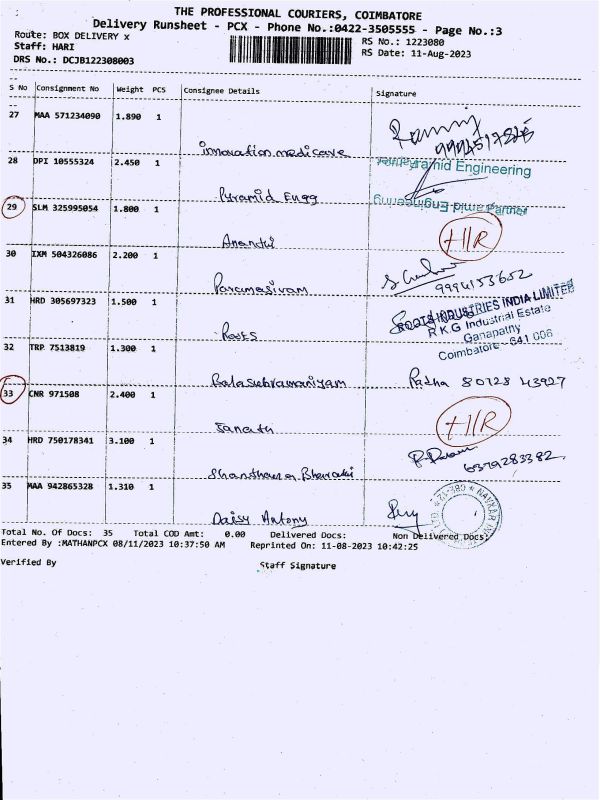 THE PROFESSIONAL COURIERS, COIMBATORE
Delivery Runsheet - PCX - Phone No.:0422-3505555 - Page No.:3
Route: BOX DELIVERY x
RS No.: 1223080
Staff: HARI
RS Date: 11-Aug-2023
DRS No.: DCJB122308003
S No Consignment No Weight PCS Consignee Details Signature
27 MAA 571234090 1.890 1
innovation medicare
28 DPI 10555324 2.450 1
Pyramid Engineering
Pyramid Engg
Pyramid Engineering
Partner
29 SLM 325995054 1.800 1
H/R
30 IXM 504326086 2.200 1
Paramasivam
9994153652
31 HRD 305697323 1.500 1
ROOTS INDUSTRIES INDIA LIMITED
R.K.G Industrial Estate
Ganapathy
Coimbatore - 641 006
Roots
32 TRP 7513819 1.300 1
Balasubramaniyam
Radha 80128 43927
33 CNR 971508 2.400 1
H/R
34 HRD 750178341 3.100 1
6379283382
35 MAA 942865328 1.310 1
Daisy Antony
Total No. Of Docs: 35 Total COD Amt: 0.00 Delivered Docs: Non Delivered Docs:
Entered By :MATHANPCX 08/11/2023 10:37:50 AM Reprinted On: 11-08-2023 10:42:25
Verified By Staff Signature